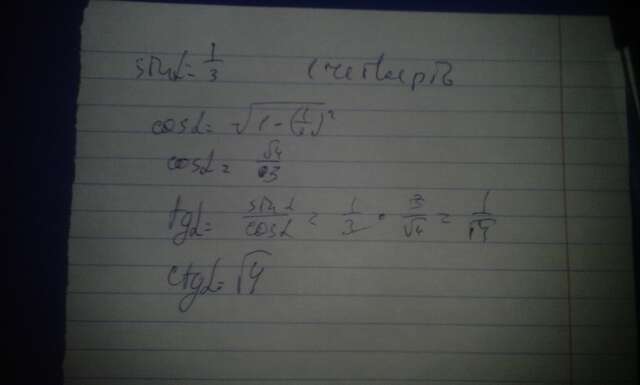 sinα = 1/3 I четверть
cosα = √(1-(1/3)²
cosα = √4/3
tgα = sinα/cosα = 1/3 · 3/√4 = 1/√4
ctgα = √4